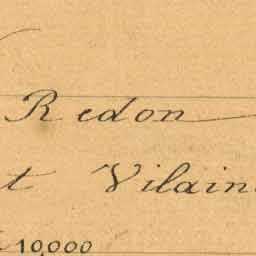 Redon
et Vilaine
10,000